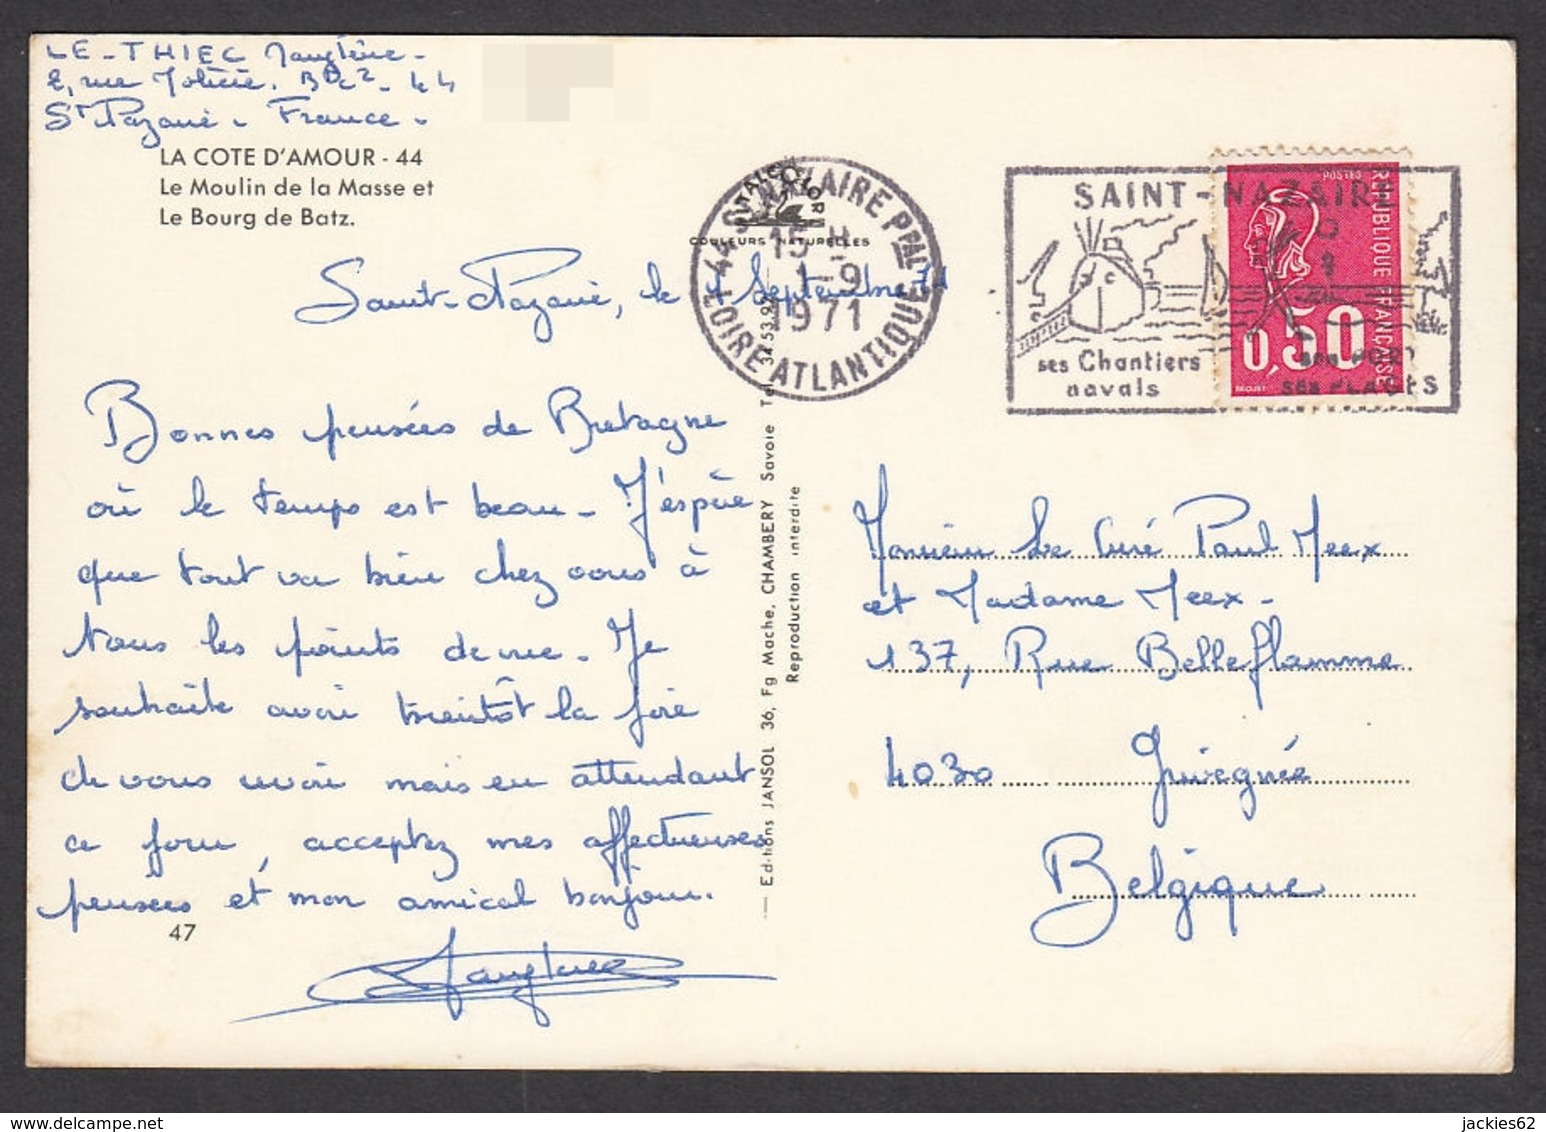 LE-THIEC
2, rue Molière. Bt c2 - 44
St Nazaire - France -
LA COTE D'AMOUR - 44
Le Moulin de la Masse et
Le Bourg de Batz.
ITALCOLOR
COULEURS NATURELLES
44 ST NAZAIRE PPAL
15 H
1-9
1971
LOIRE ATLANTIQUE
SAINT-NAZAIRE
ses Chantiers
navals
son PORT
ses PLAGES
POSTES
REPUBLIQUE FRANÇAISE
0,50
Saint-Nazaire, le 1 Septembre 71
Bonnes pensées de Bretagne
où le temps est beau. J'espère
que tout va bien chez vous à
tous les points de vue. Je
souhaite avoir bientôt la joie
de vous revoir mais en attendant
ce jour, acceptez mes affectueuses
pensées et mon amical bonjour.
47
Editions JANSOL 36, Fg Mache, CHAMBERY Savoie Tel 34 53.92
Reproduction interdite
Monsieur Le Curé Paul Meex
et Madame Meex -
137, Rue Belleflamme
4030 Grivegnée
Belgique
jackies62